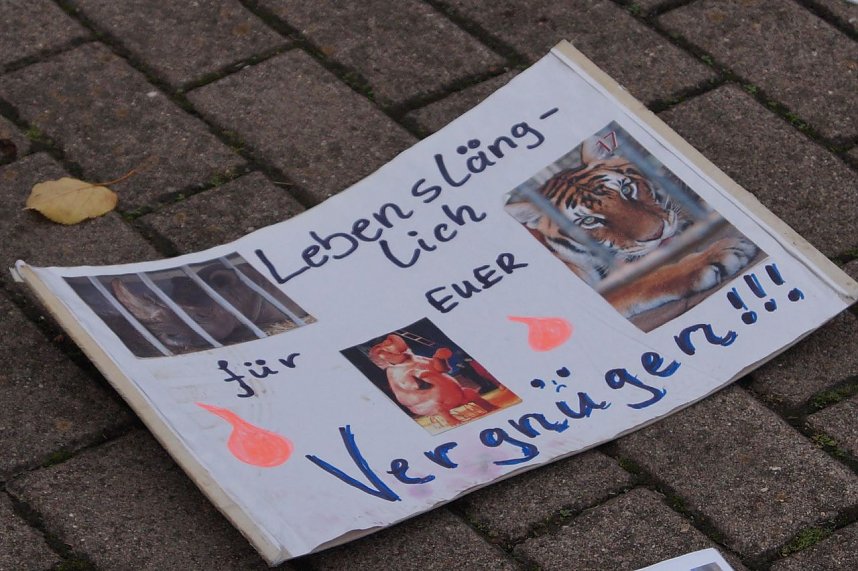 Lebensläng-
lich
für EUER
Vergnügen!!!